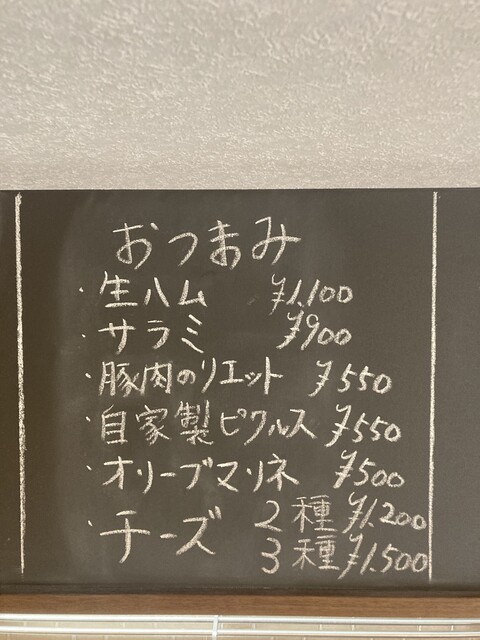 おつまみ
・生ハム ¥1.100
・サラミ ¥900
・豚肉のリエット ¥550
・自家製ピクルス ¥550
・オリーブマリネ ¥500
・チーズ 2種 ¥1.200
3種 ¥1.500